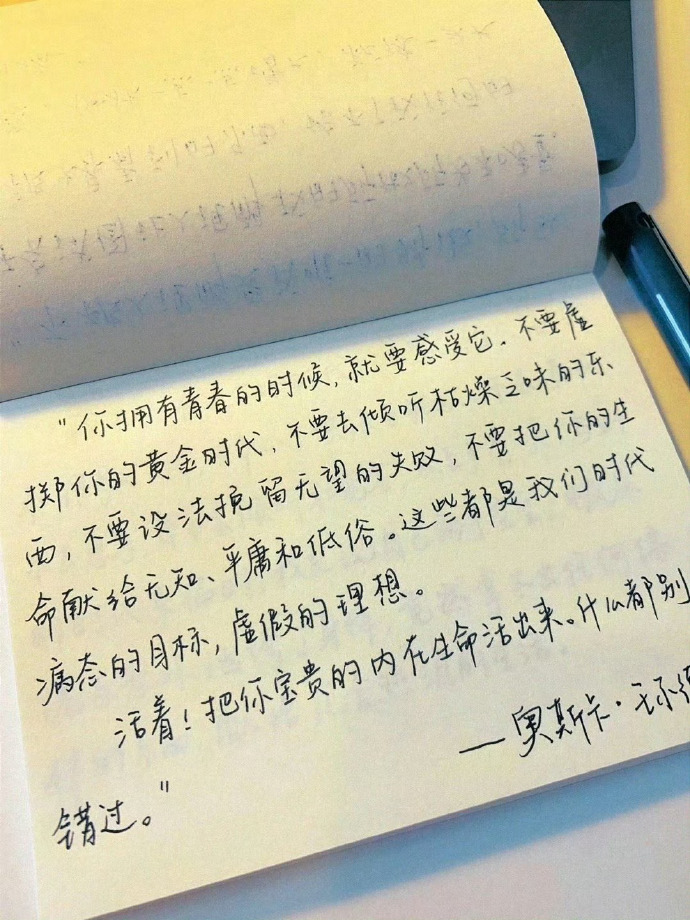 "你拥有青春的时候,就要感受它。不要虚
掷你的黄金时代,不要去倾听枯燥乏味的东
西,不要设法挽留无望的失败,不要把你的生
命献给无知、平庸和低俗。这些都是我们时代
病态的目标,虚假的理想。
活着!把你宝贵的内在生命活出来。什么都别
错过。"
——奥斯卡·王尔德